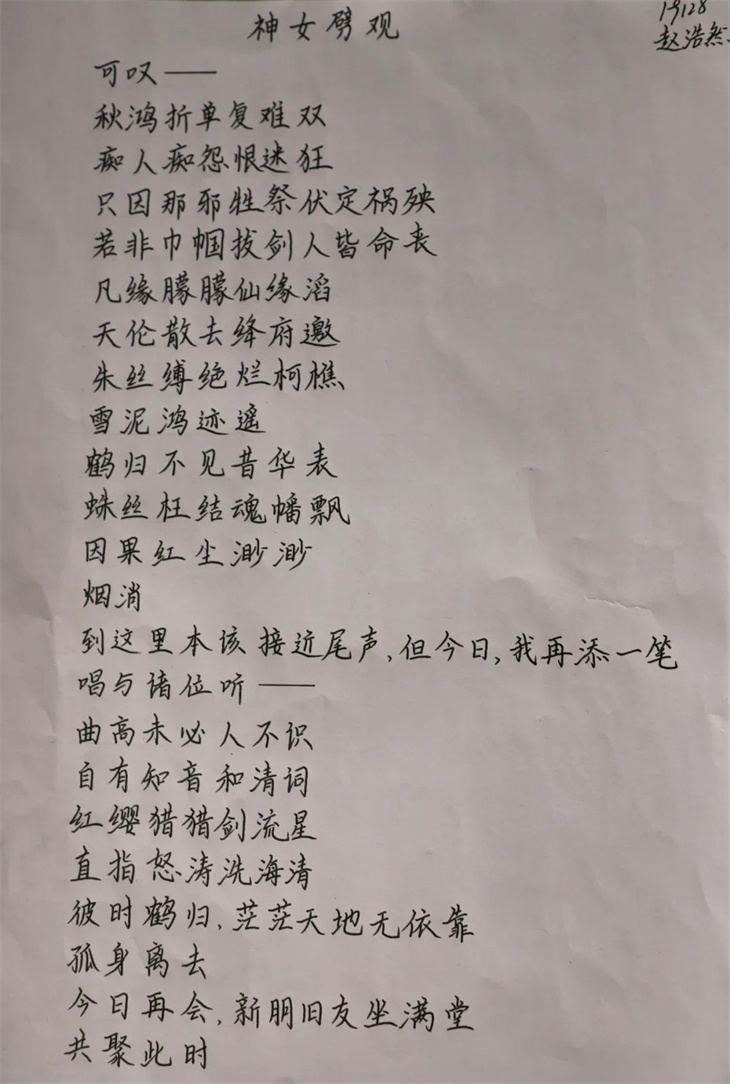 神女劈观
19128
赵浩然
可叹——
秋鸿折单复难双
痴人痴怨恨迷狂
只因那邪牲祭伏定祸殃
若非巾帼拔剑人皆命丧
凡缘朦朦仙缘滔
天伦散去绛府邀
朱丝缚绝烂柯樵
雪泥鸿迹遥
鹤归不见昔华表
蛛丝枉结魂幡飘
因果红尘渺渺
烟消
到这里本该接近尾声,但今日,我再添一笔
唱与诸位听——
曲高未必人不识
自有知音和清词
红缨猎猎剑流星
直指怒涛洗海清
彼时鹤归,茫茫天地无依靠
孤身离去
今日再会,新朋旧友坐满堂
共聚此时